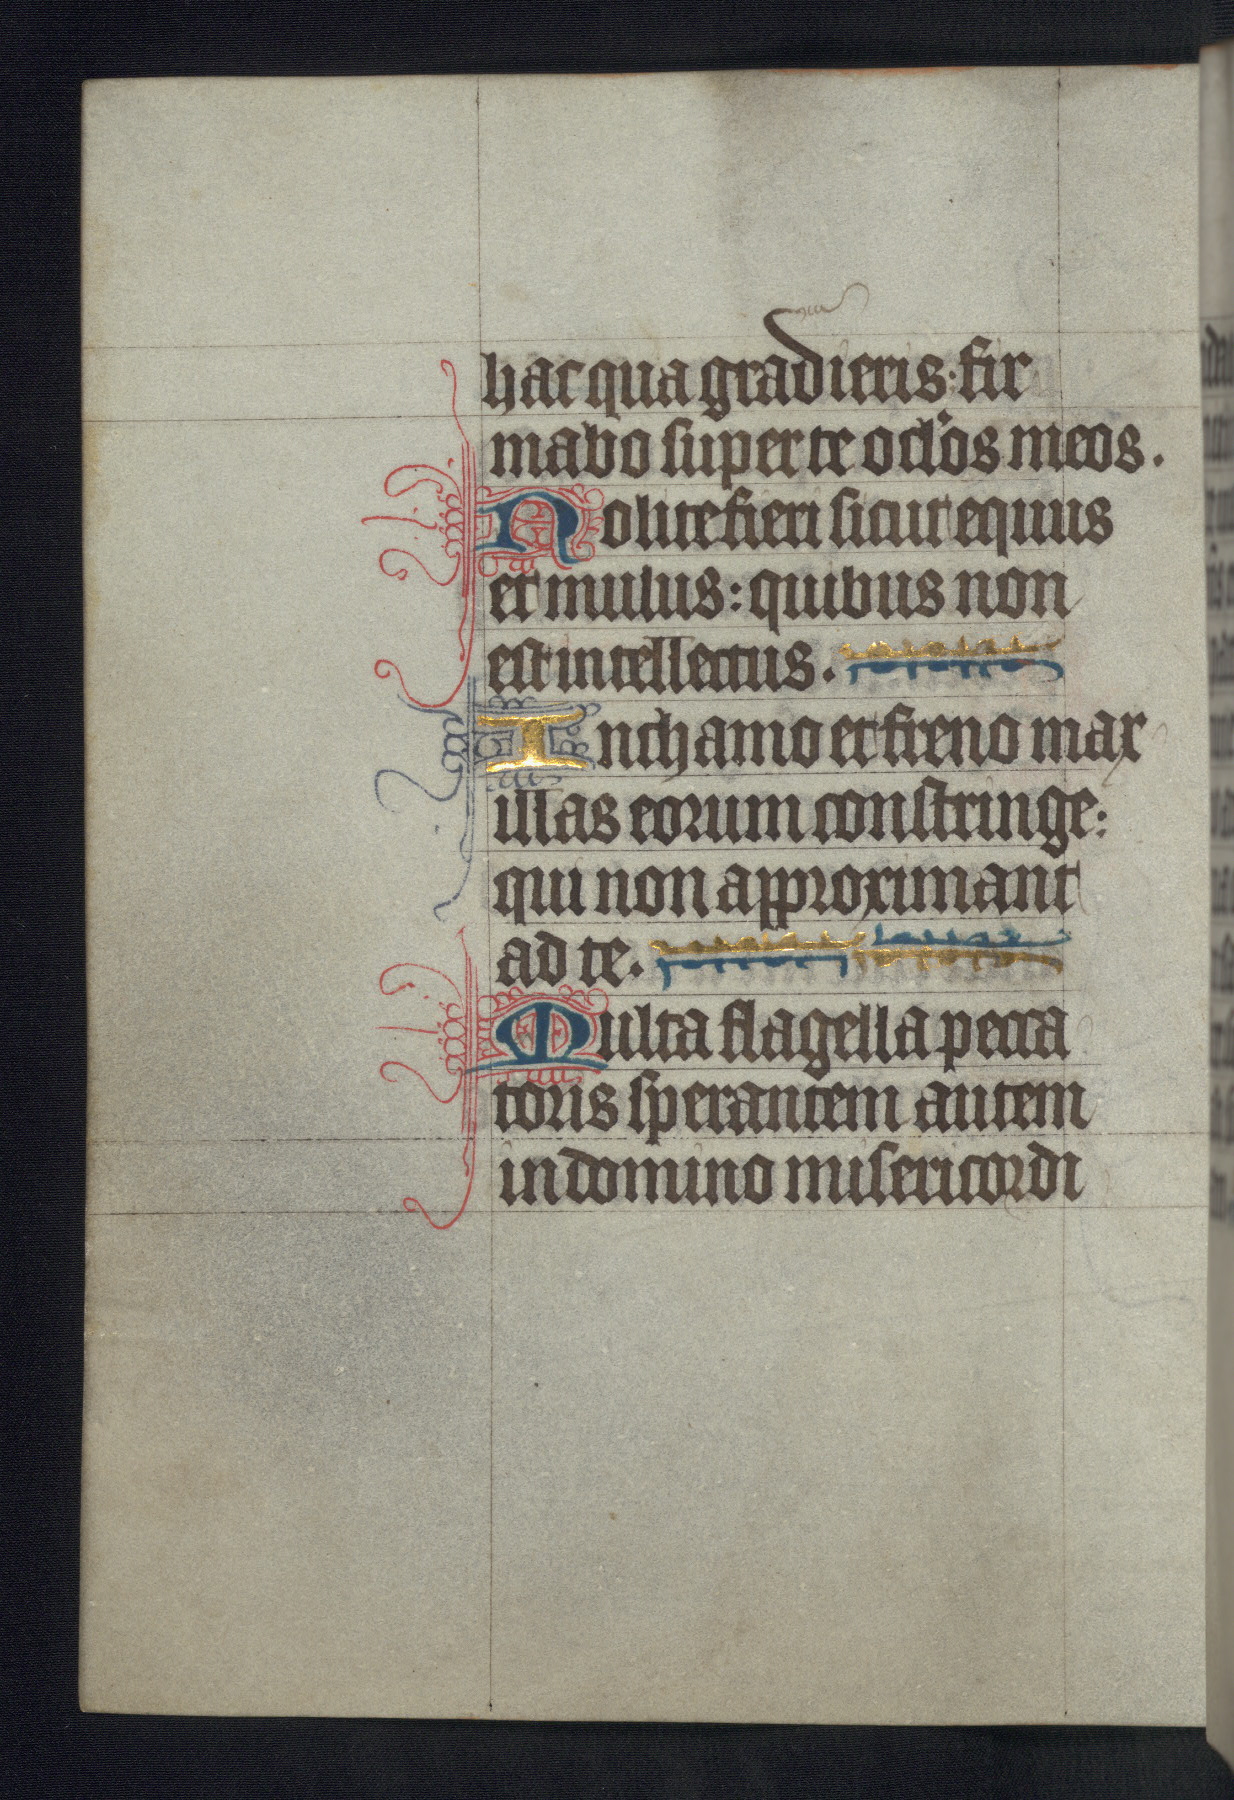 hac qua gradieris: fir
mabo super te oclos meos.
Nolite fieri sicut equus
et mulus: quibus non
est intellectus.
In chamo et freno max
illas eorum constringe:
qui non approximant
ad te.
Multa flagella pecca
toris sperantem autem
in domino misericordi